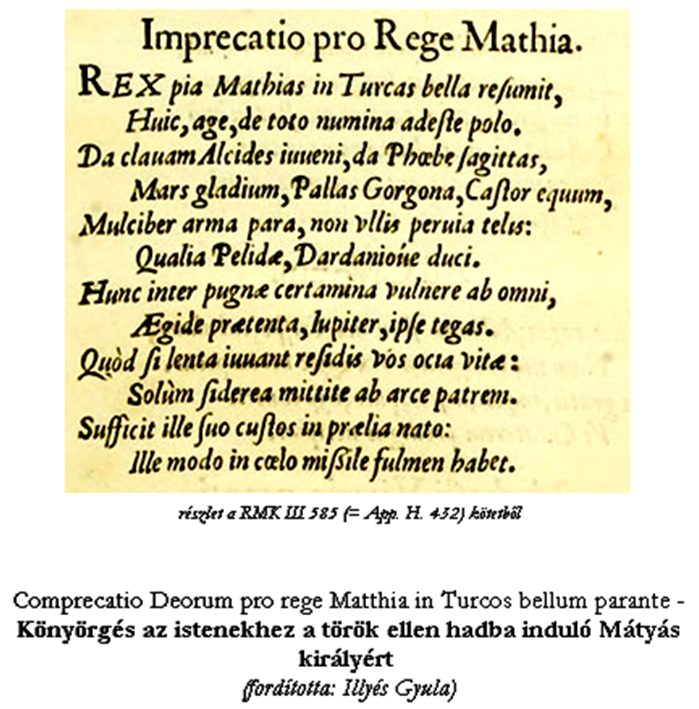 Imprecatio pro Rege Mathia.
REX pia Mathias in Turcas bella reſumit,
Huic, age, de toto numina adeſte polo.
Da clauam Alcides iuueni, da Phœbe ſagittas,
Mars gladium, Pallas Gorgona, Caſtor equum,
Mulciber arma para, non vllis peruia telis:
Qualia Pelidæ, Dardanioúe duci.
Hunc inter pugnæ certamina vulnere ab omni,
Ægide prætenta, Iupiter, ipſe tegas.
Quòd ſi lenta iuuant reſidis vos ocia vitæ:
Solùm ſiderea mittite ab arce patrem.
Sufficit ille ſuo cuſtos in prælia nato:
Ille modo in cœlo miſsile fulmen habet.
részlet a RMK III 585 (= App. H. 432) kötetből
Comprecatio Deorum pro rege Matthia in Turcos bellum parante -
Könyörgés az istenekhez a török ellen hadba induló Mátyás
királyért
(fordította: Illyés Gyula)